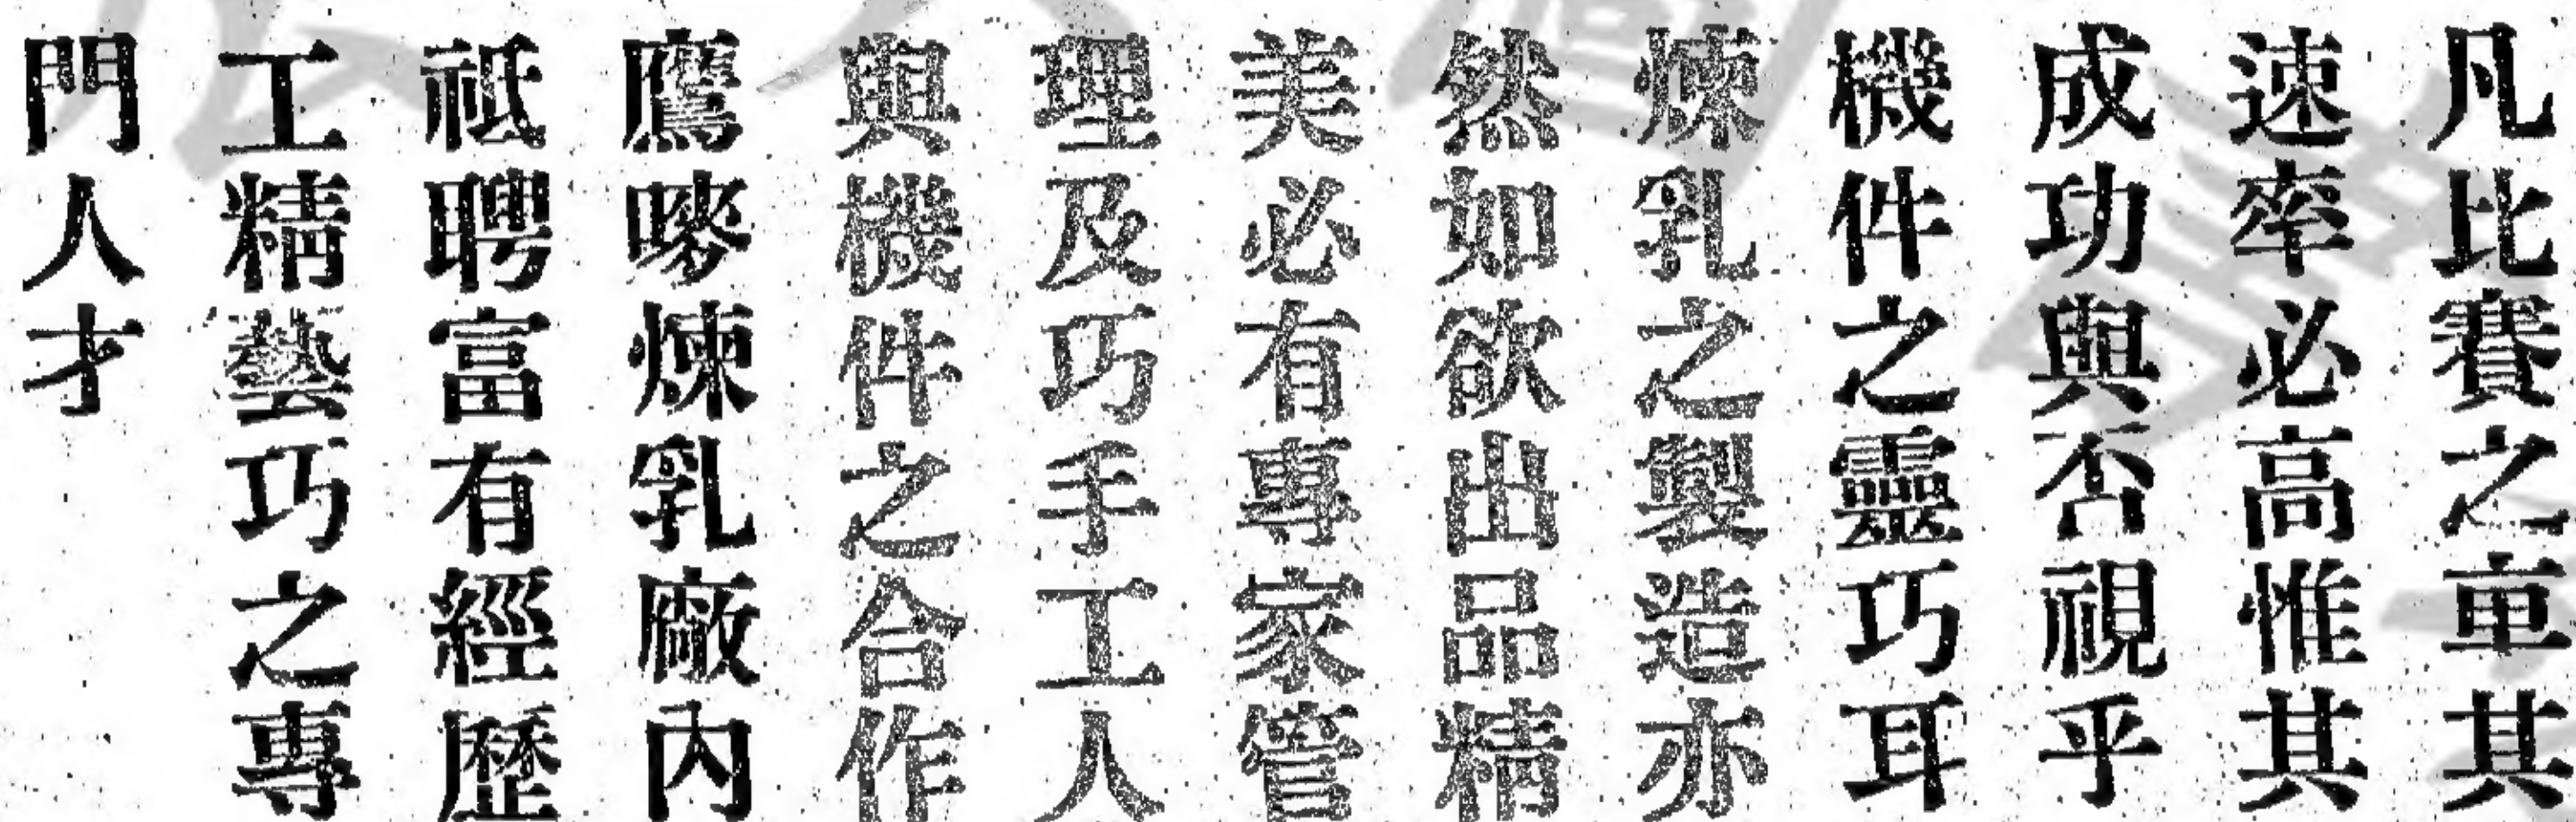 凡比賽之車其
速率必高惟其
成功與否視乎
機件之靈巧耳
煉乳之製造亦
然如欲出品精
美必有專家管
理及巧手工人
與機件之合作
鷹嘜煉乳廠內
祗聘富有經歷
工精藝巧之專
門人才